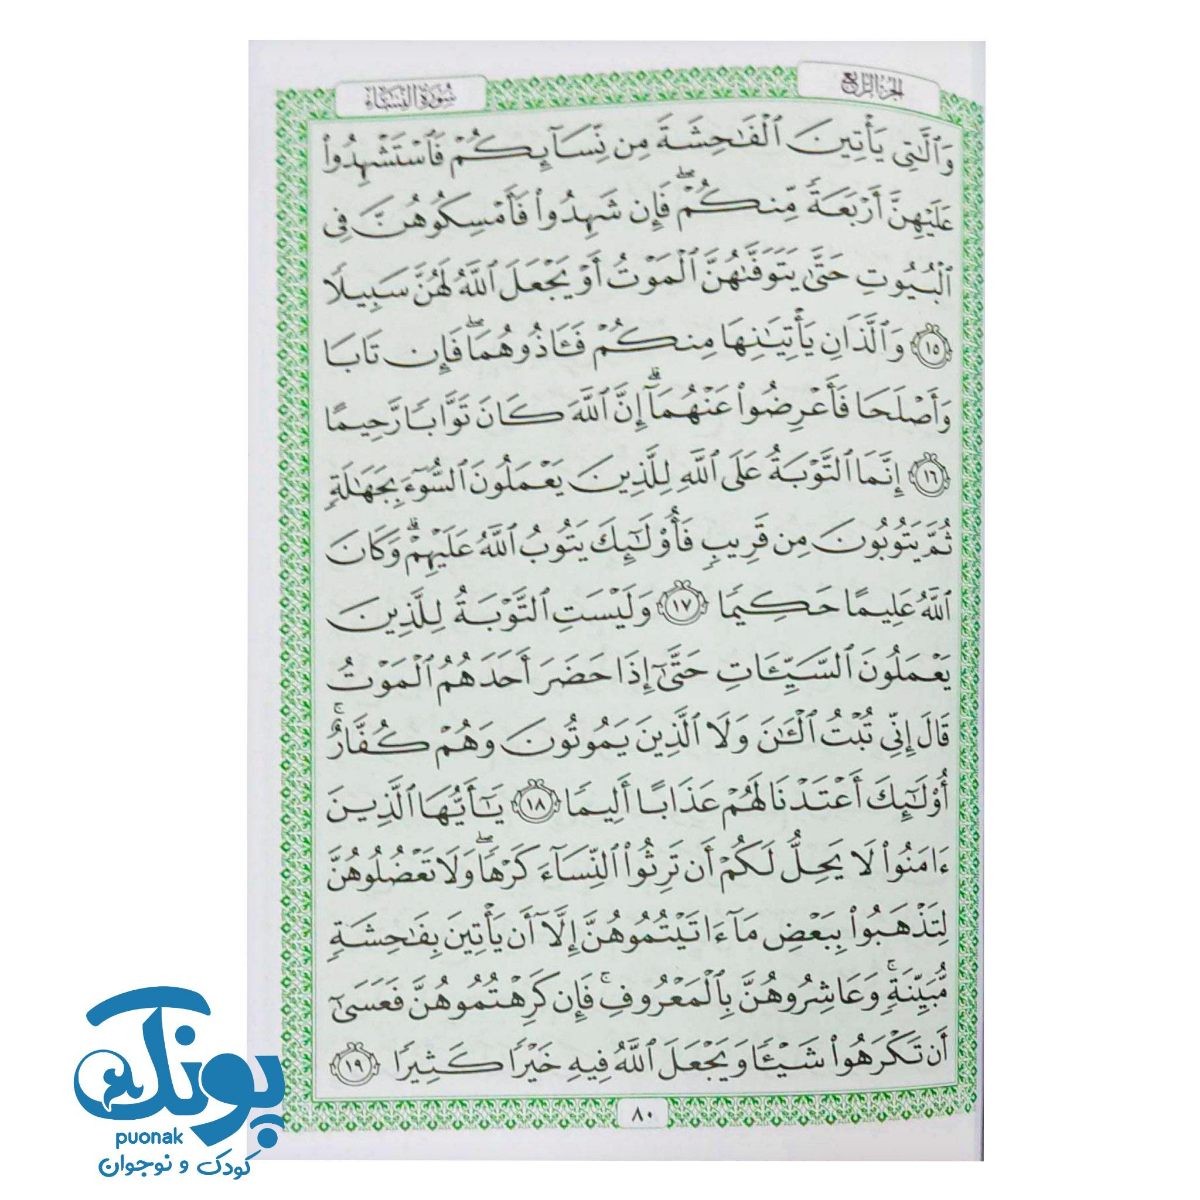 الجزء الرابع
سورة النساء
وَٱلَّٰتِى يَأْتِينَ ٱلْفَٰحِشَةَ مِن نِّسَآئِكُمْ فَٱسْتَشْهِدُوا۟
عَلَيْهِنَّ أَرْبَعَةً مِّنكُمْ ۖ فَإِن شَهِدُوا۟ فَأَمْسِكُوهُنَّ فِى
ٱلْبُيُوتِ حَتَّىٰ يَتَوَفَّىٰهُنَّ ٱلْمَوْتُ أَوْ يَجْعَلَ ٱللَّهُ لَهُنَّ سَبِيلًا
١٥ وَٱلَّذَانِ يَأْتِيَٰنِهَا مِنكُمْ فَـَٔاذُوهُمَا ۖ فَإِن تَابَا
وَأَصْلَحَا فَأَعْرِضُوا۟ عَنْهُمَآ ۗ إِنَّ ٱللَّهَ كَانَ تَوَّابًا رَّحِيمًا
١٦ إِنَّمَا ٱلتَّوْبَةُ عَلَى ٱللَّهِ لِلَّذِينَ يَعْمَلُونَ ٱلسُّوٓءَ بِجَهَٰلَةٍ
ثُمَّ يَتُوبُونَ مِن قَرِيبٍ فَأُو۟لَٰٓئِكَ يَتُوبُ ٱللَّهُ عَلَيْهِمْ ۗ وَكَانَ
ٱللَّهُ عَلِيمًا حَكِيمًا ١٧ وَلَيْسَتِ ٱلتَّوْبَةُ لِلَّذِينَ
يَعْمَلُونَ ٱلسَّيِّـَٔاتِ حَتَّىٰٓ إِذَا حَضَرَ أَحَدَهُمُ ٱلْمَوْتُ
قَالَ إِنِّى تُبْتُ ٱلْـَٰٔنَ وَلَا ٱلَّذِينَ يَمُوتُونَ وَهُمْ كُفَّارٌ ۚ
أُو۟لَٰٓئِكَ أَعْتَدْنَا لَهُمْ عَذَابًا أَلِيمًا ١٨ يَٰٓأَيُّهَا ٱلَّذِينَ
ءَامَنُوا۟ لَا يَحِلُّ لَكُمْ أَن تَرِثُوا۟ ٱلنِّسَآءَ كَرْهًا ۖ وَلَا تَعْضُلُوهُنَّ
لِتَذْهَبُوا۟ بِبَعْضِ مَآ ءَاتَيْتُمُوهُنَّ إِلَّآ أَن يَأْتِينَ بِفَٰحِشَةٍ
مُّبَيِّنَةٍ ۚ وَعَاشِرُوهُنَّ بِٱلْمَعْرُوفِ ۚ فَإِن كَرِهْتُمُوهُنَّ فَعَسَىٰٓ
أَن تَكْرَهُوا۟ شَيْـًٔا وَيَجْعَلَ ٱللَّهُ فِيهِ خَيْرًا كَثِيرًا ١٩
٨٠
پونک
puonak
کودک و نوجوان